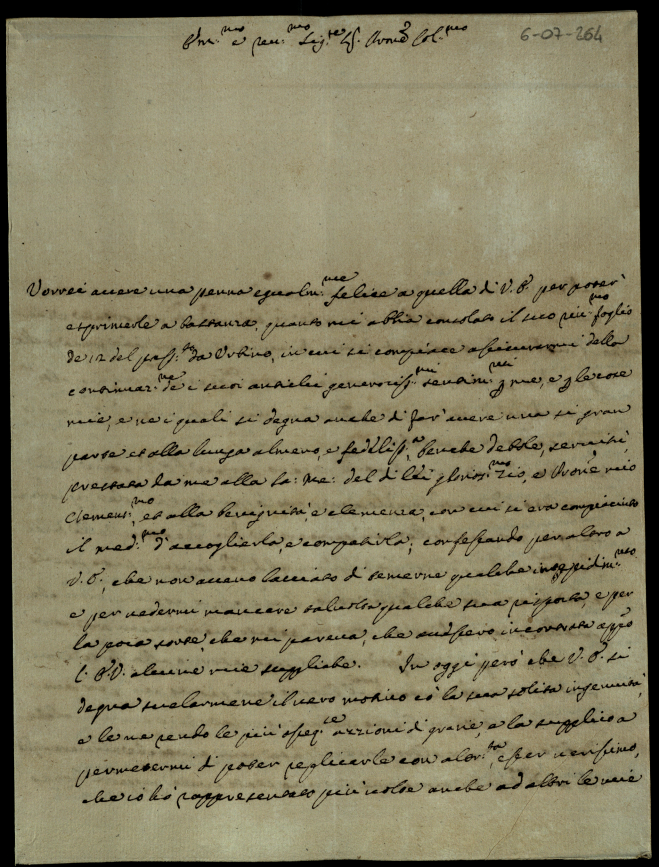 Em.mo e rev.mo Sig.re Sig. Prone Col.mo
6-07-264
Vorrei avere una penna egualm.me felice a quella di V. E. per poter
esprimerle a bastanza, quanto mi abbia consolato il suo foglio
de 12 del pass.to da Urbino, in cui si compiace assicurarmi della
continuaz.ne de i suoi antichi generosiss.mi sentim.ti p me, e p le cose
mie, e ne i quali si degna anche di far' avere una si gran
parte et alla lunga almeno, e fedeliss.a benche debole, servitù,
prestata da me alla sa: me: del di Lei glorios.mo Zio, e Prone mio
Clementiss.mo et alla benignità, e clemenza, con cui si era compiaciuto
il med.mo d'accoglierla, e compatirla; confessando per altro a
V. E., che non avevo lasciato di temerne qualche
e per vedermi mancare talvolta qualche sua risposta, e per
la poca sorte, che mi pareva, che avessero incontrata appo
l' E. V. alcune mie suppliche. In oggi però che V. E. si
degna svelarmene il vero motivo cò la sua solita ingenuità,
e le ne rendo le più azzioni di grazie, e la supplico a
permettermi di poter replicarle con altr.ta, e per verissimo,
che io hò rappresentato più volte anche ad altri le mie